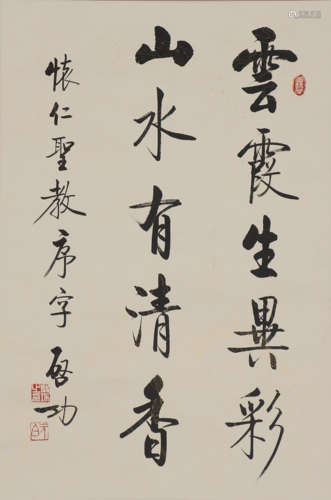 雲霞生異彩
山水有清香
懷仁聖教序字 啓功